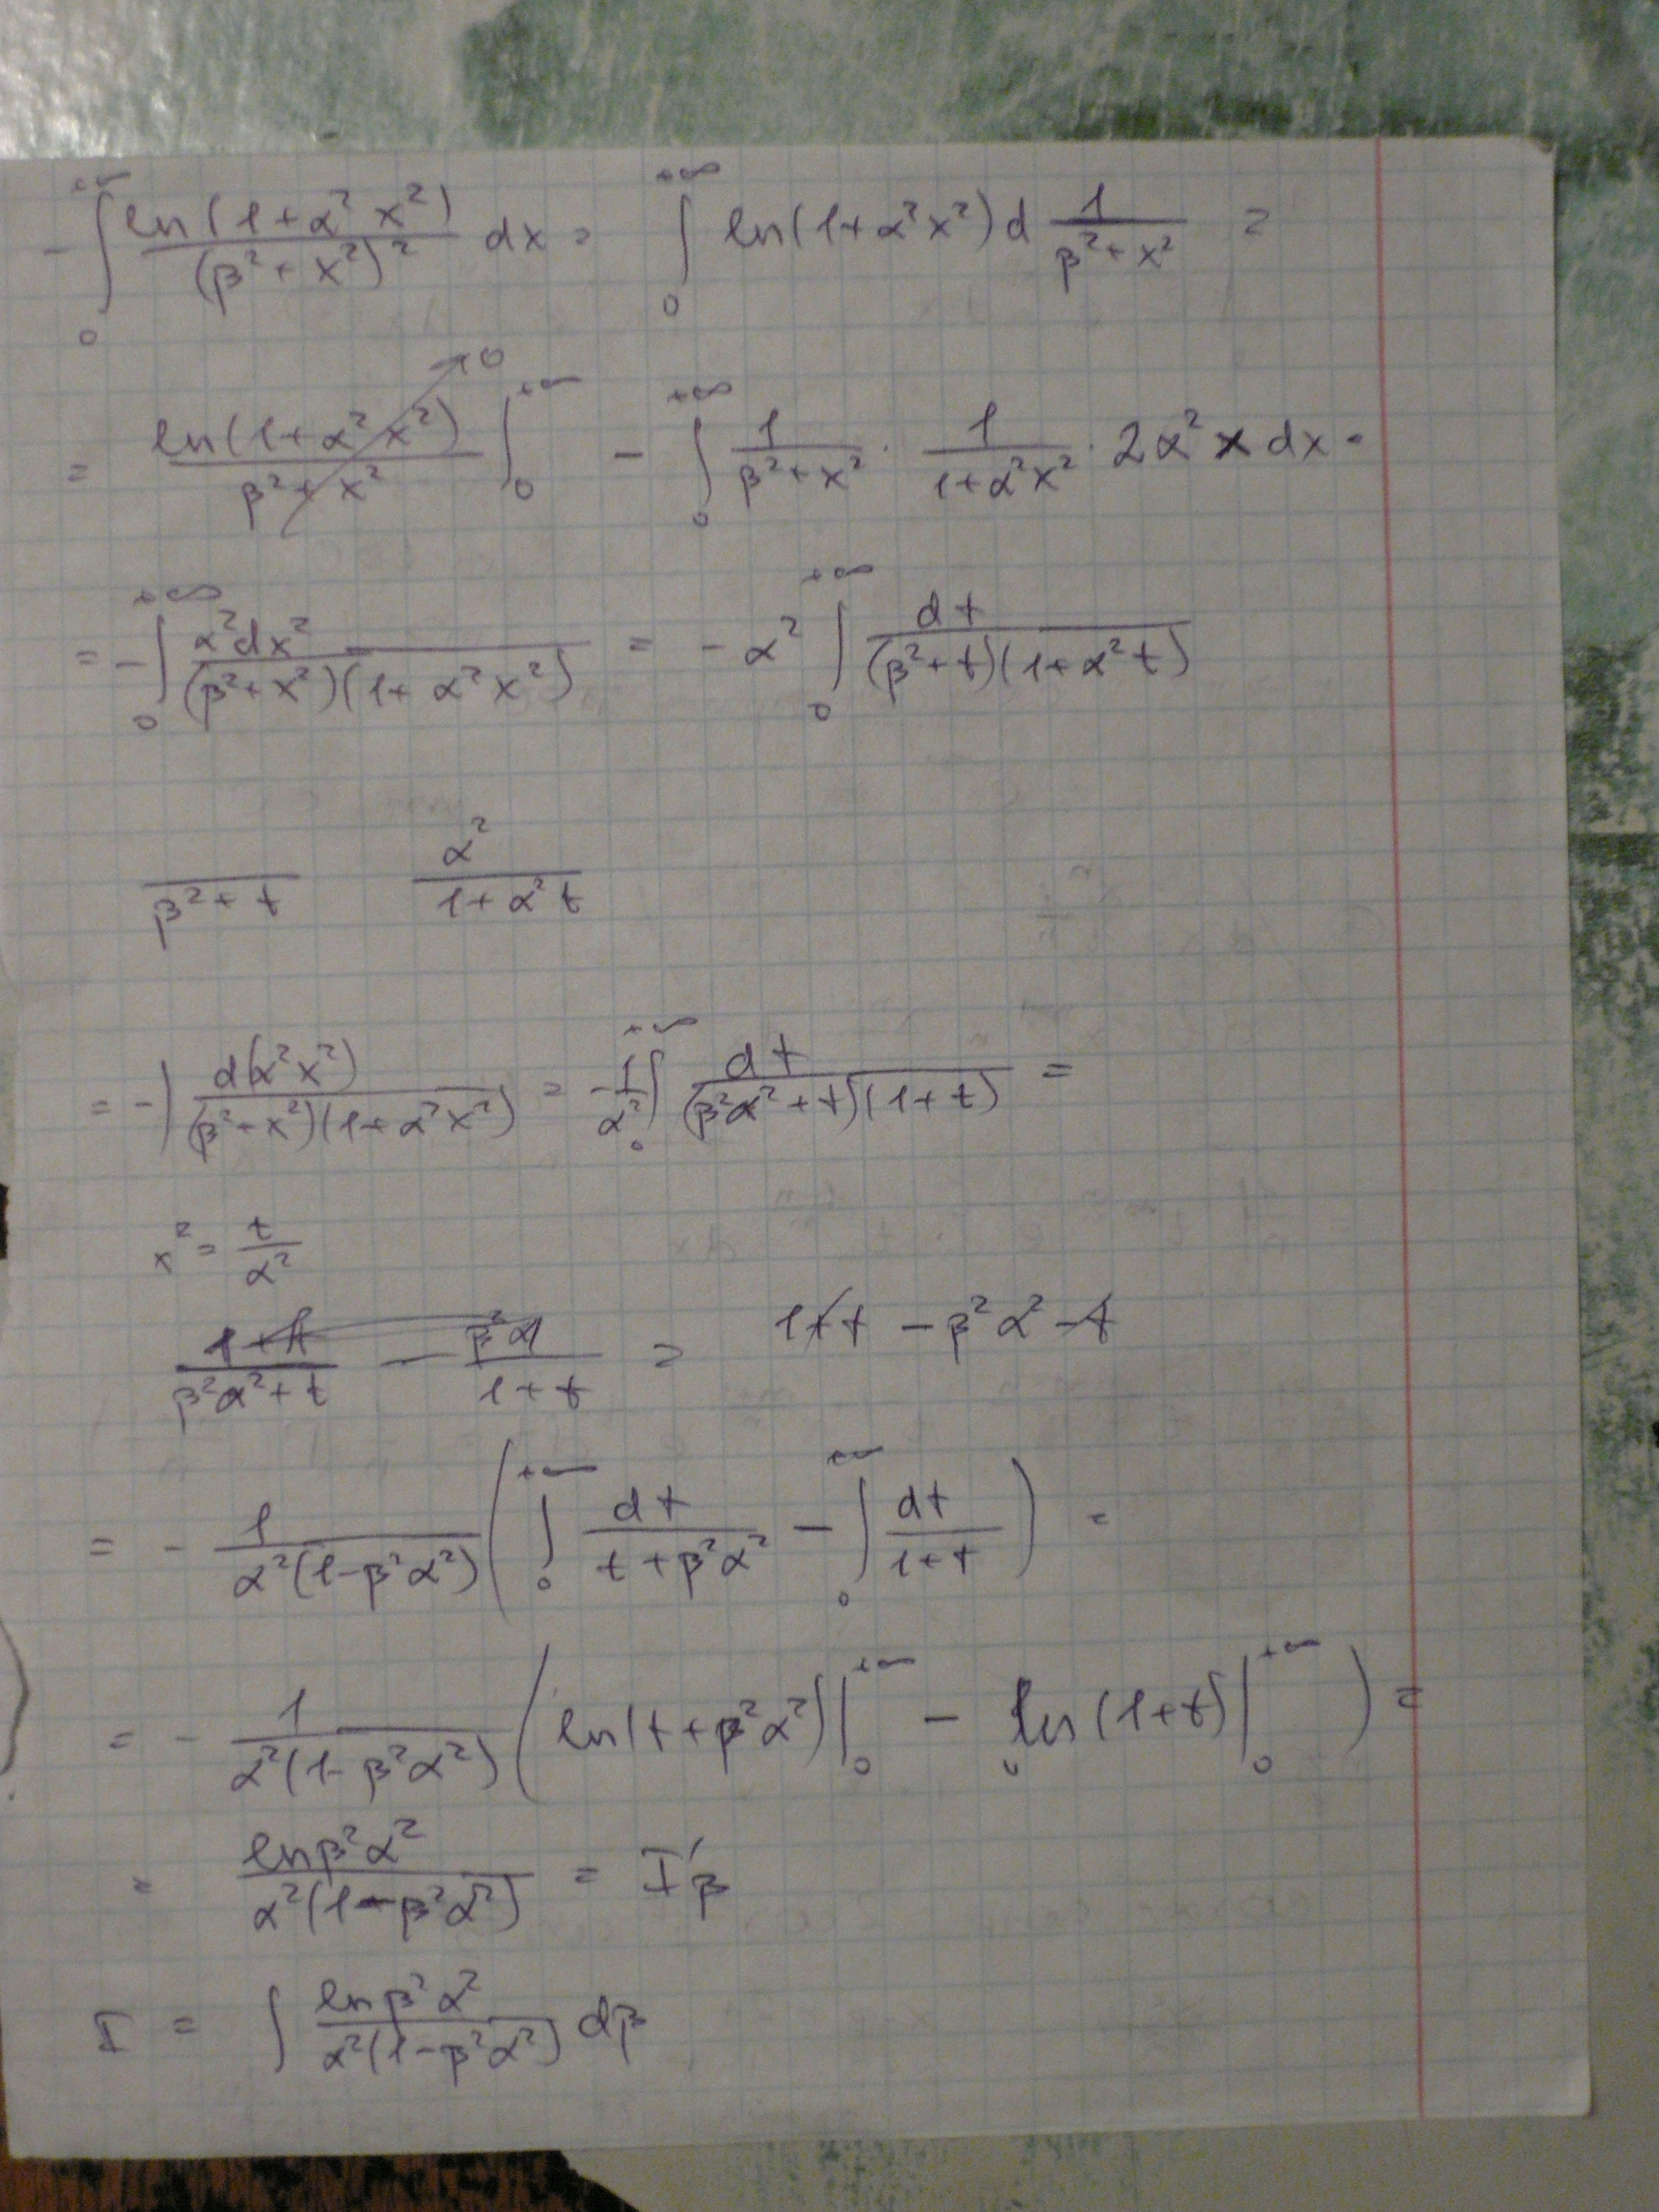 - ∫₀^{+∞} ln(1+α²x²)/(β²+x²)² dx = ∫₀^{+∞} ln(1+α²x²) d 1/(β²+x²) =
= ln(1+α²x²)/(β²+x²) |₀^{+∞} →0 - ∫₀^{+∞} 1/(β²+x²) · 1/(1+α²x²) · 2α² x dx =
= -∫₀^{+∞} α²dx²/((β²+x²)(1+α²x²)) = -α² ∫₀^{+∞} dt/((β²+t)(1+α²t))
/(β²+t) α²/(1+α²t)
= -∫ d(α²x²)/((β²+x²)(1+α²x²)) = -1/α² ∫₀^{+∞} dt/((β²α²+t)(1+t)) =
x² = t/α²
1/(β²α²+t) - 1/(1+t) = 1+t - β²α² - t
= - 1/(α²(1-β²α²)) (∫₀^{+∞} dt/(t+β²α²) - ∫₀^{+∞} dt/(1+t)) =
= - 1/(α²(1-β²α²)) (ln(t+β²α²)|₀^{+∞} - ln(1+t)|₀^{+∞}) =
= lnβ²α²/(α²(1-β²α²)) = I'β
I = ∫ lnβ²α²/(α²(1-β²α²)) dβ